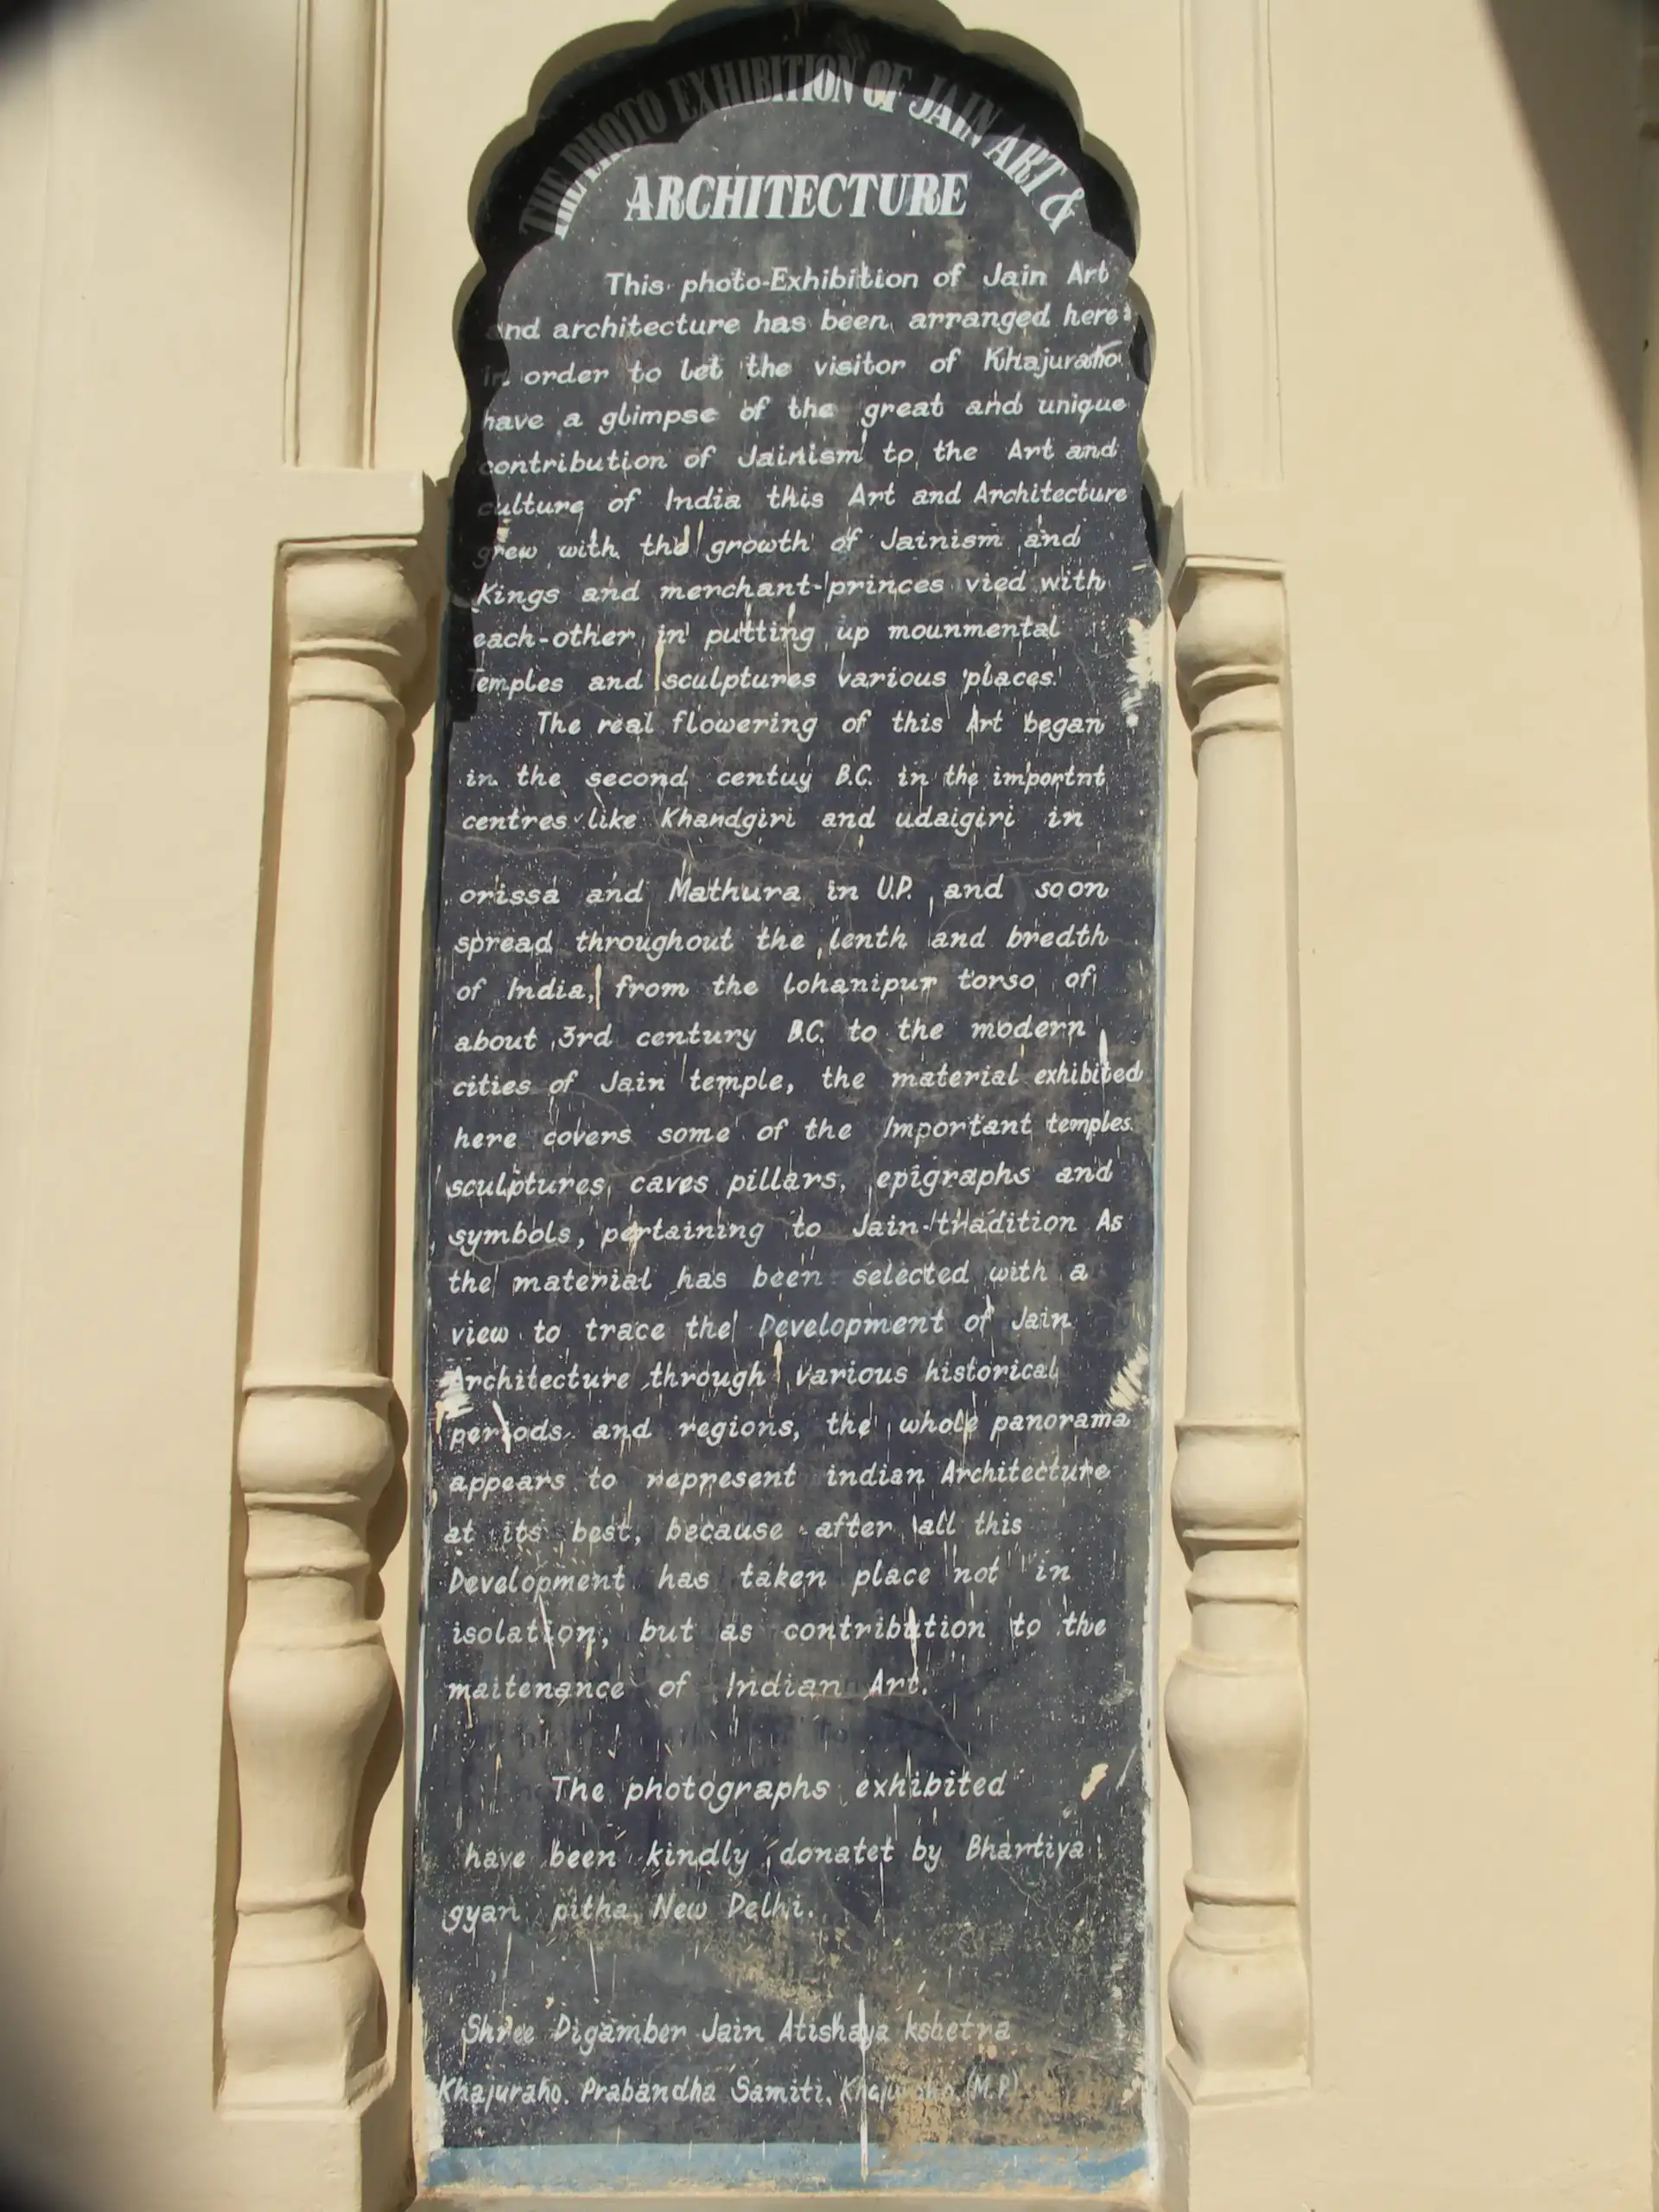 THE PHOTO EXHIBITION OF JAIN ART &
ARCHITECTURE
This photo-Exhibition of Jain Art
and architecture has been arranged here
in order to let the visitor of Khajuraho
have a glimpse of the great and unique
contribution of Jainism to the Art and
culture of India this Art and Architecture
grew with the growth of Jainism and
Kings and merchant-princes vied with
each-other in putting up mounmental
Temples and sculptures various places.
The real flowering of this Art began
in the second centuy B.C. in the importnt
centres like Khandgiri and udaigiri in
orissa and Mathura in U.P. and soon
spread throughout the lenth and bredth
of India, from the lohanipur torso of
about 3rd century B.C. to the modern
cities of Jain temple, the material exhibited
here covers some of the Important temples
sculptures, caves pillars, epigraphs and
symbols, pertaining to Jain-tradition As
the material has been selected with a
view to trace the Development of Jain
Architecture through various historical
periods and regions, the whole panorama
appears to represent indian Architecture
at its best, because after all this
Development has taken place not in
isolation, but as contribution to the
maitenance of Indian Art.
The photographs exhibited
have been kindly donatet by Bhartiya
gyan pitha New Delhi.
Shree Digamber Jain Atishaya kshetra
Khajuraho. Prabandha Samiti. Khajuraho (M.P.)